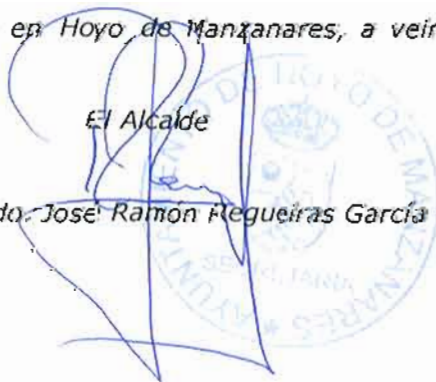 en Hoyo de Manzanares, a vein
El Alcalde
do. José Ramón Regueiras García
AYUNTAMIENTO DE HOYO DE MANZANARES *
SECRETARIA